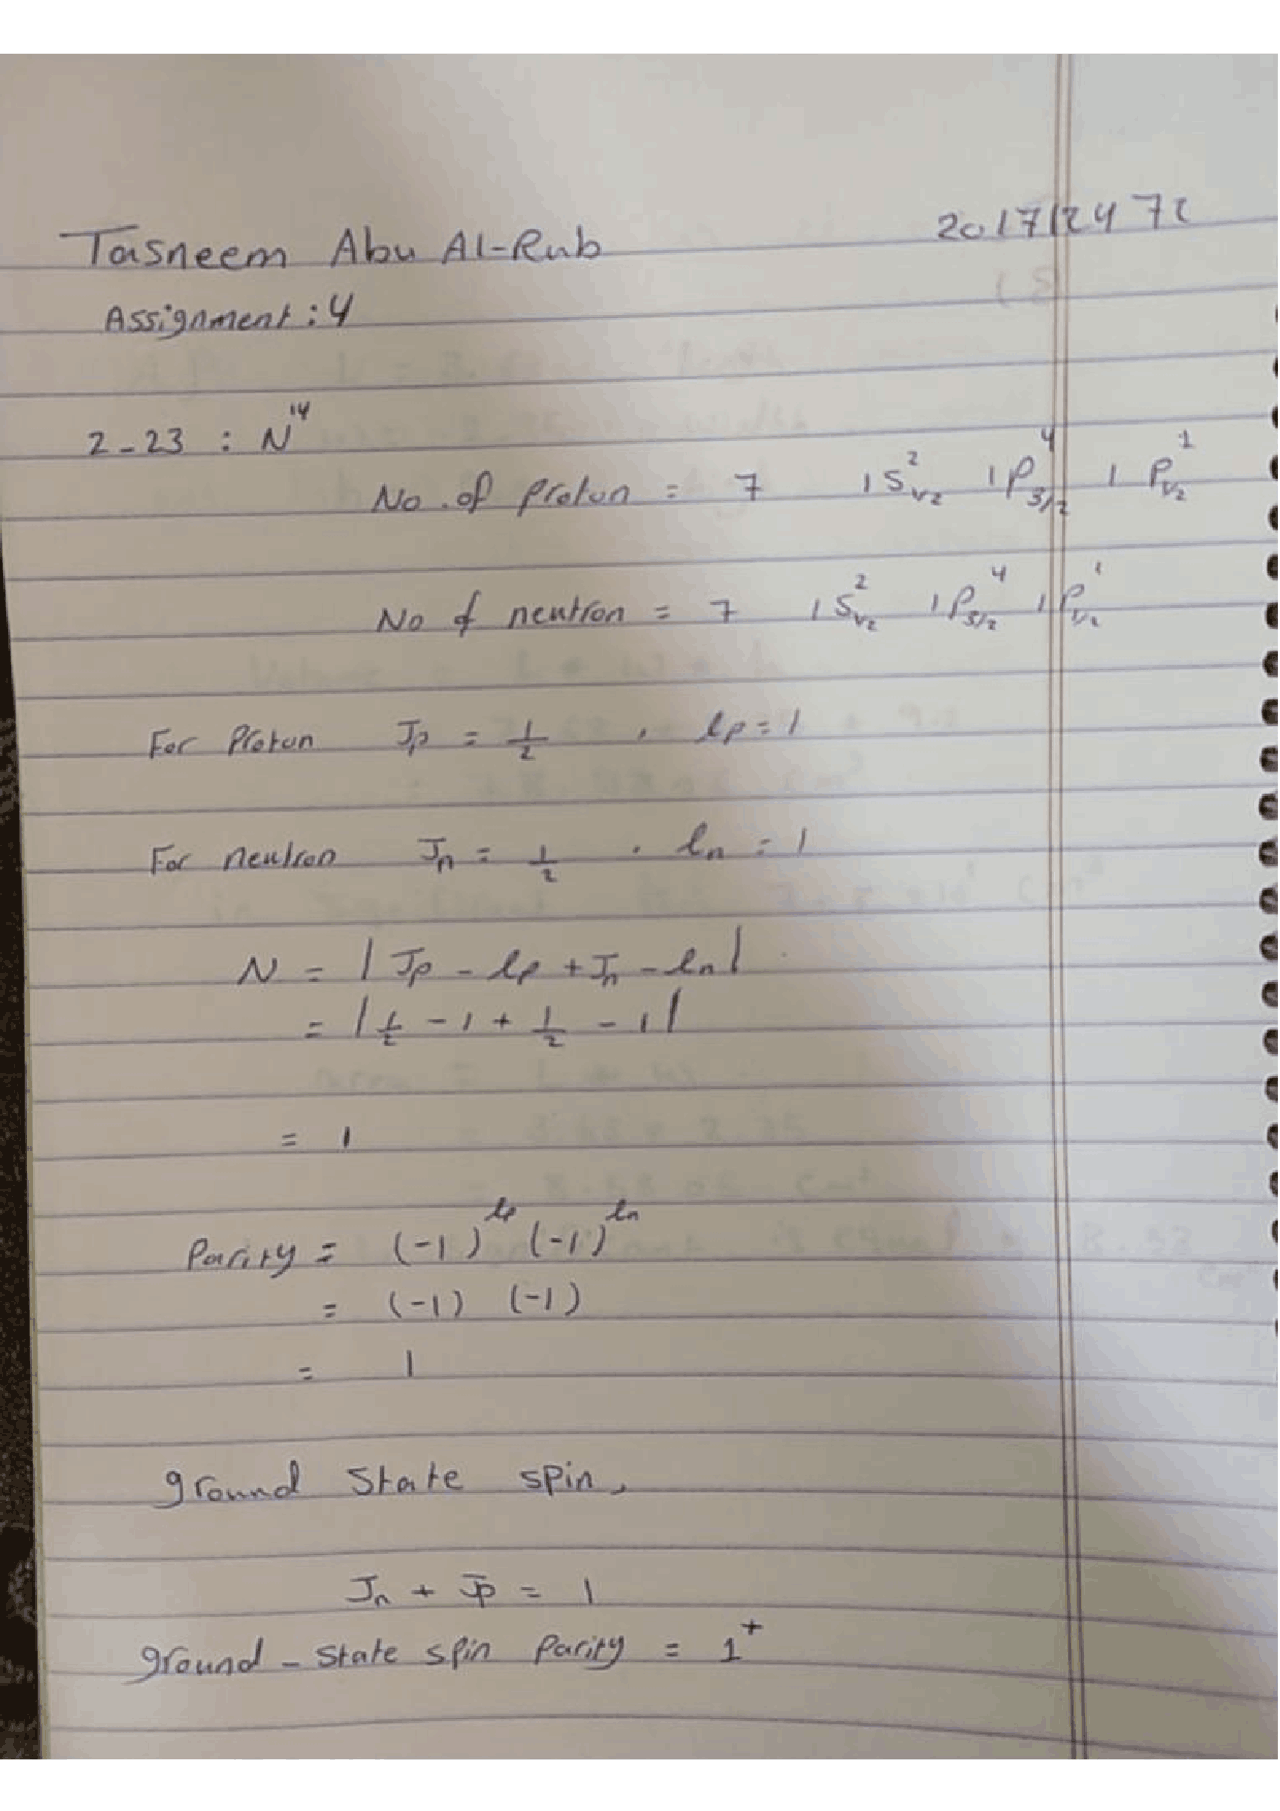 Tasneem Abu Al-Rub
Assignment : 4
2-23 : N¹⁴
No. of Proton = 7 1S²₁/₂ 1P⁴₃/₂ 1P¹₁/₂
No of neutron = 7 1S²₁/₂ 1P⁴₃/₂ 1P¹₁/₂
For Proton Jp = 1/2 , lp = 1
For neutron Jn = 1/2 , ln = 1
N = | Jp - lp + Jn - ln |
= | 1/2 - 1 + 1/2 - 1 |
= 1
Parity = (-1)^lp (-1)^ln
= (-1) (-1)
= 1
ground state spin,
Jn + Jp = 1
ground - state spin parity = 1⁺